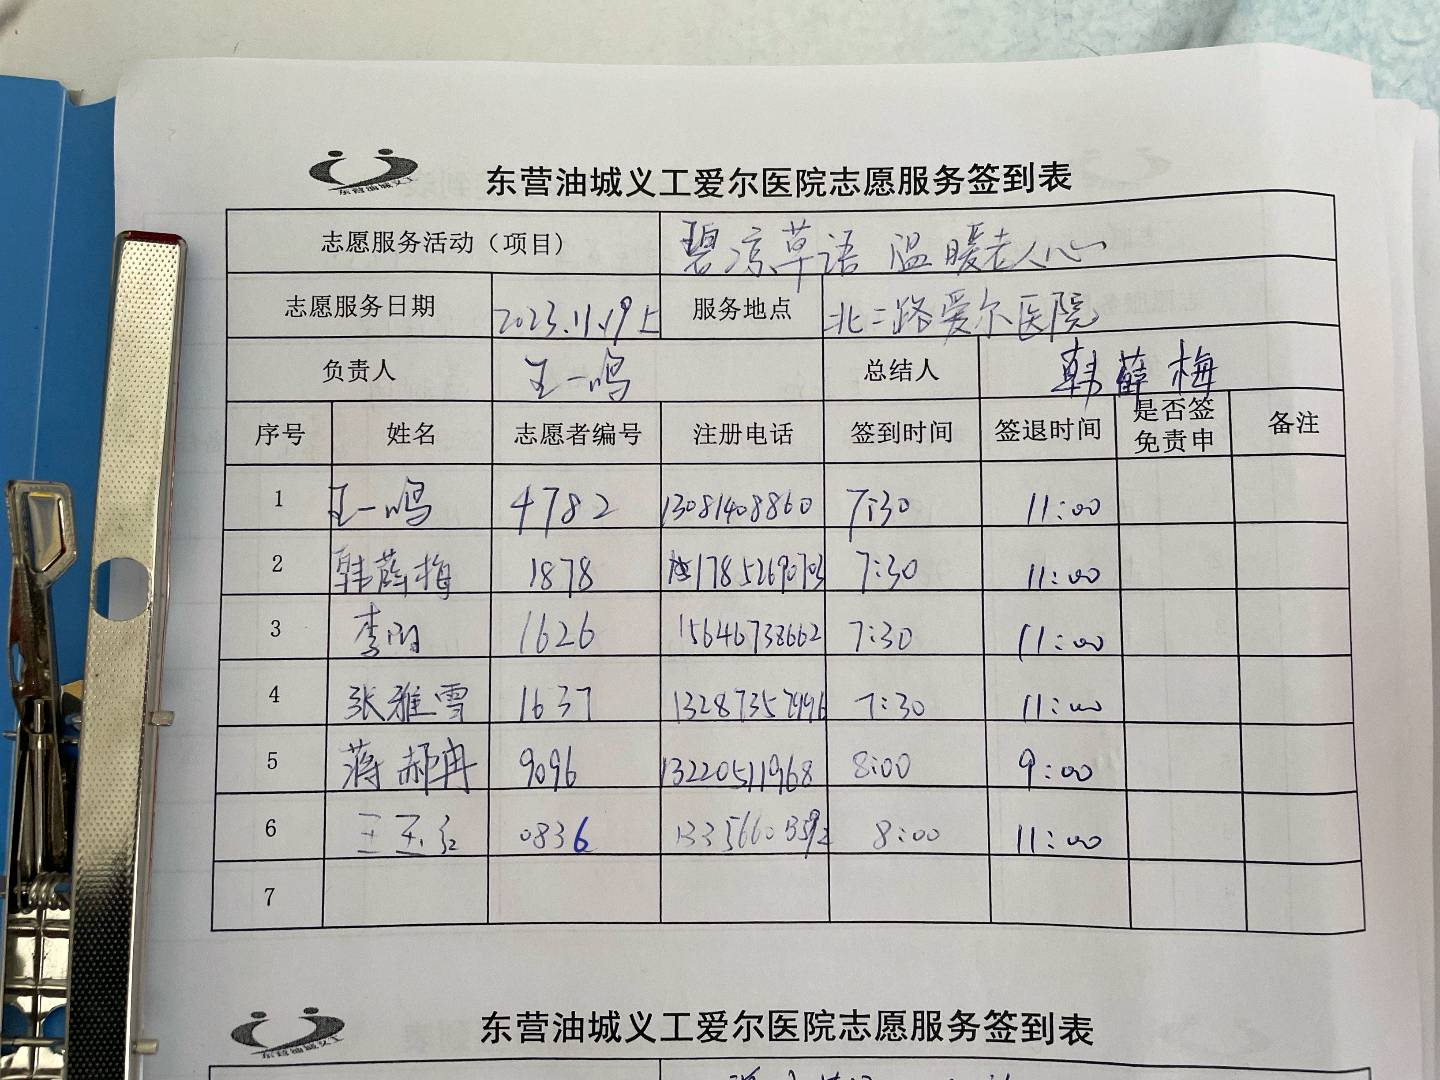 东营油城义工
东营油城义工爱尔医院志愿服务签到表
志愿服务活动（项目） 碧凉草语 温暖老人心
志愿服务日期 2023.11.19上 服务地点 北二路爱尔医院
负责人 王一鸣 总结人 韩薛梅
序号 姓名 志愿者编号 注册电话 签到时间 签退时间 是否签免责申 备注
1 王一鸣 4782 13081408860 7:30 11:00
2 韩薛梅 1878 17852690703 7:30 11:00
3 李雨 1626 15646738662 7:30 11:00
4 张雅雪 1637 7:30 11:00
5 蒋郝冉 9096 13220511968 8:00 9:00
6 王玉红 0836 8:00 11:00
7
东营油城义工
东营油城义工爱尔医院志愿服务签到表